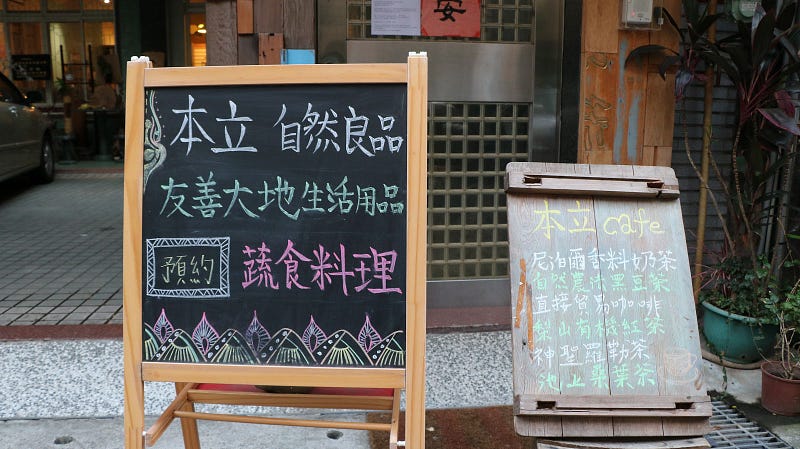 安
本立 自然良品
友善大地生活用品
預約 蔬食料理
本立 cafe
尼泊爾香料奶茶
自然農法黑豆茶
直接貿易咖啡
梨山有机紅茶
神聖羅勒茶
池上桑葉茶